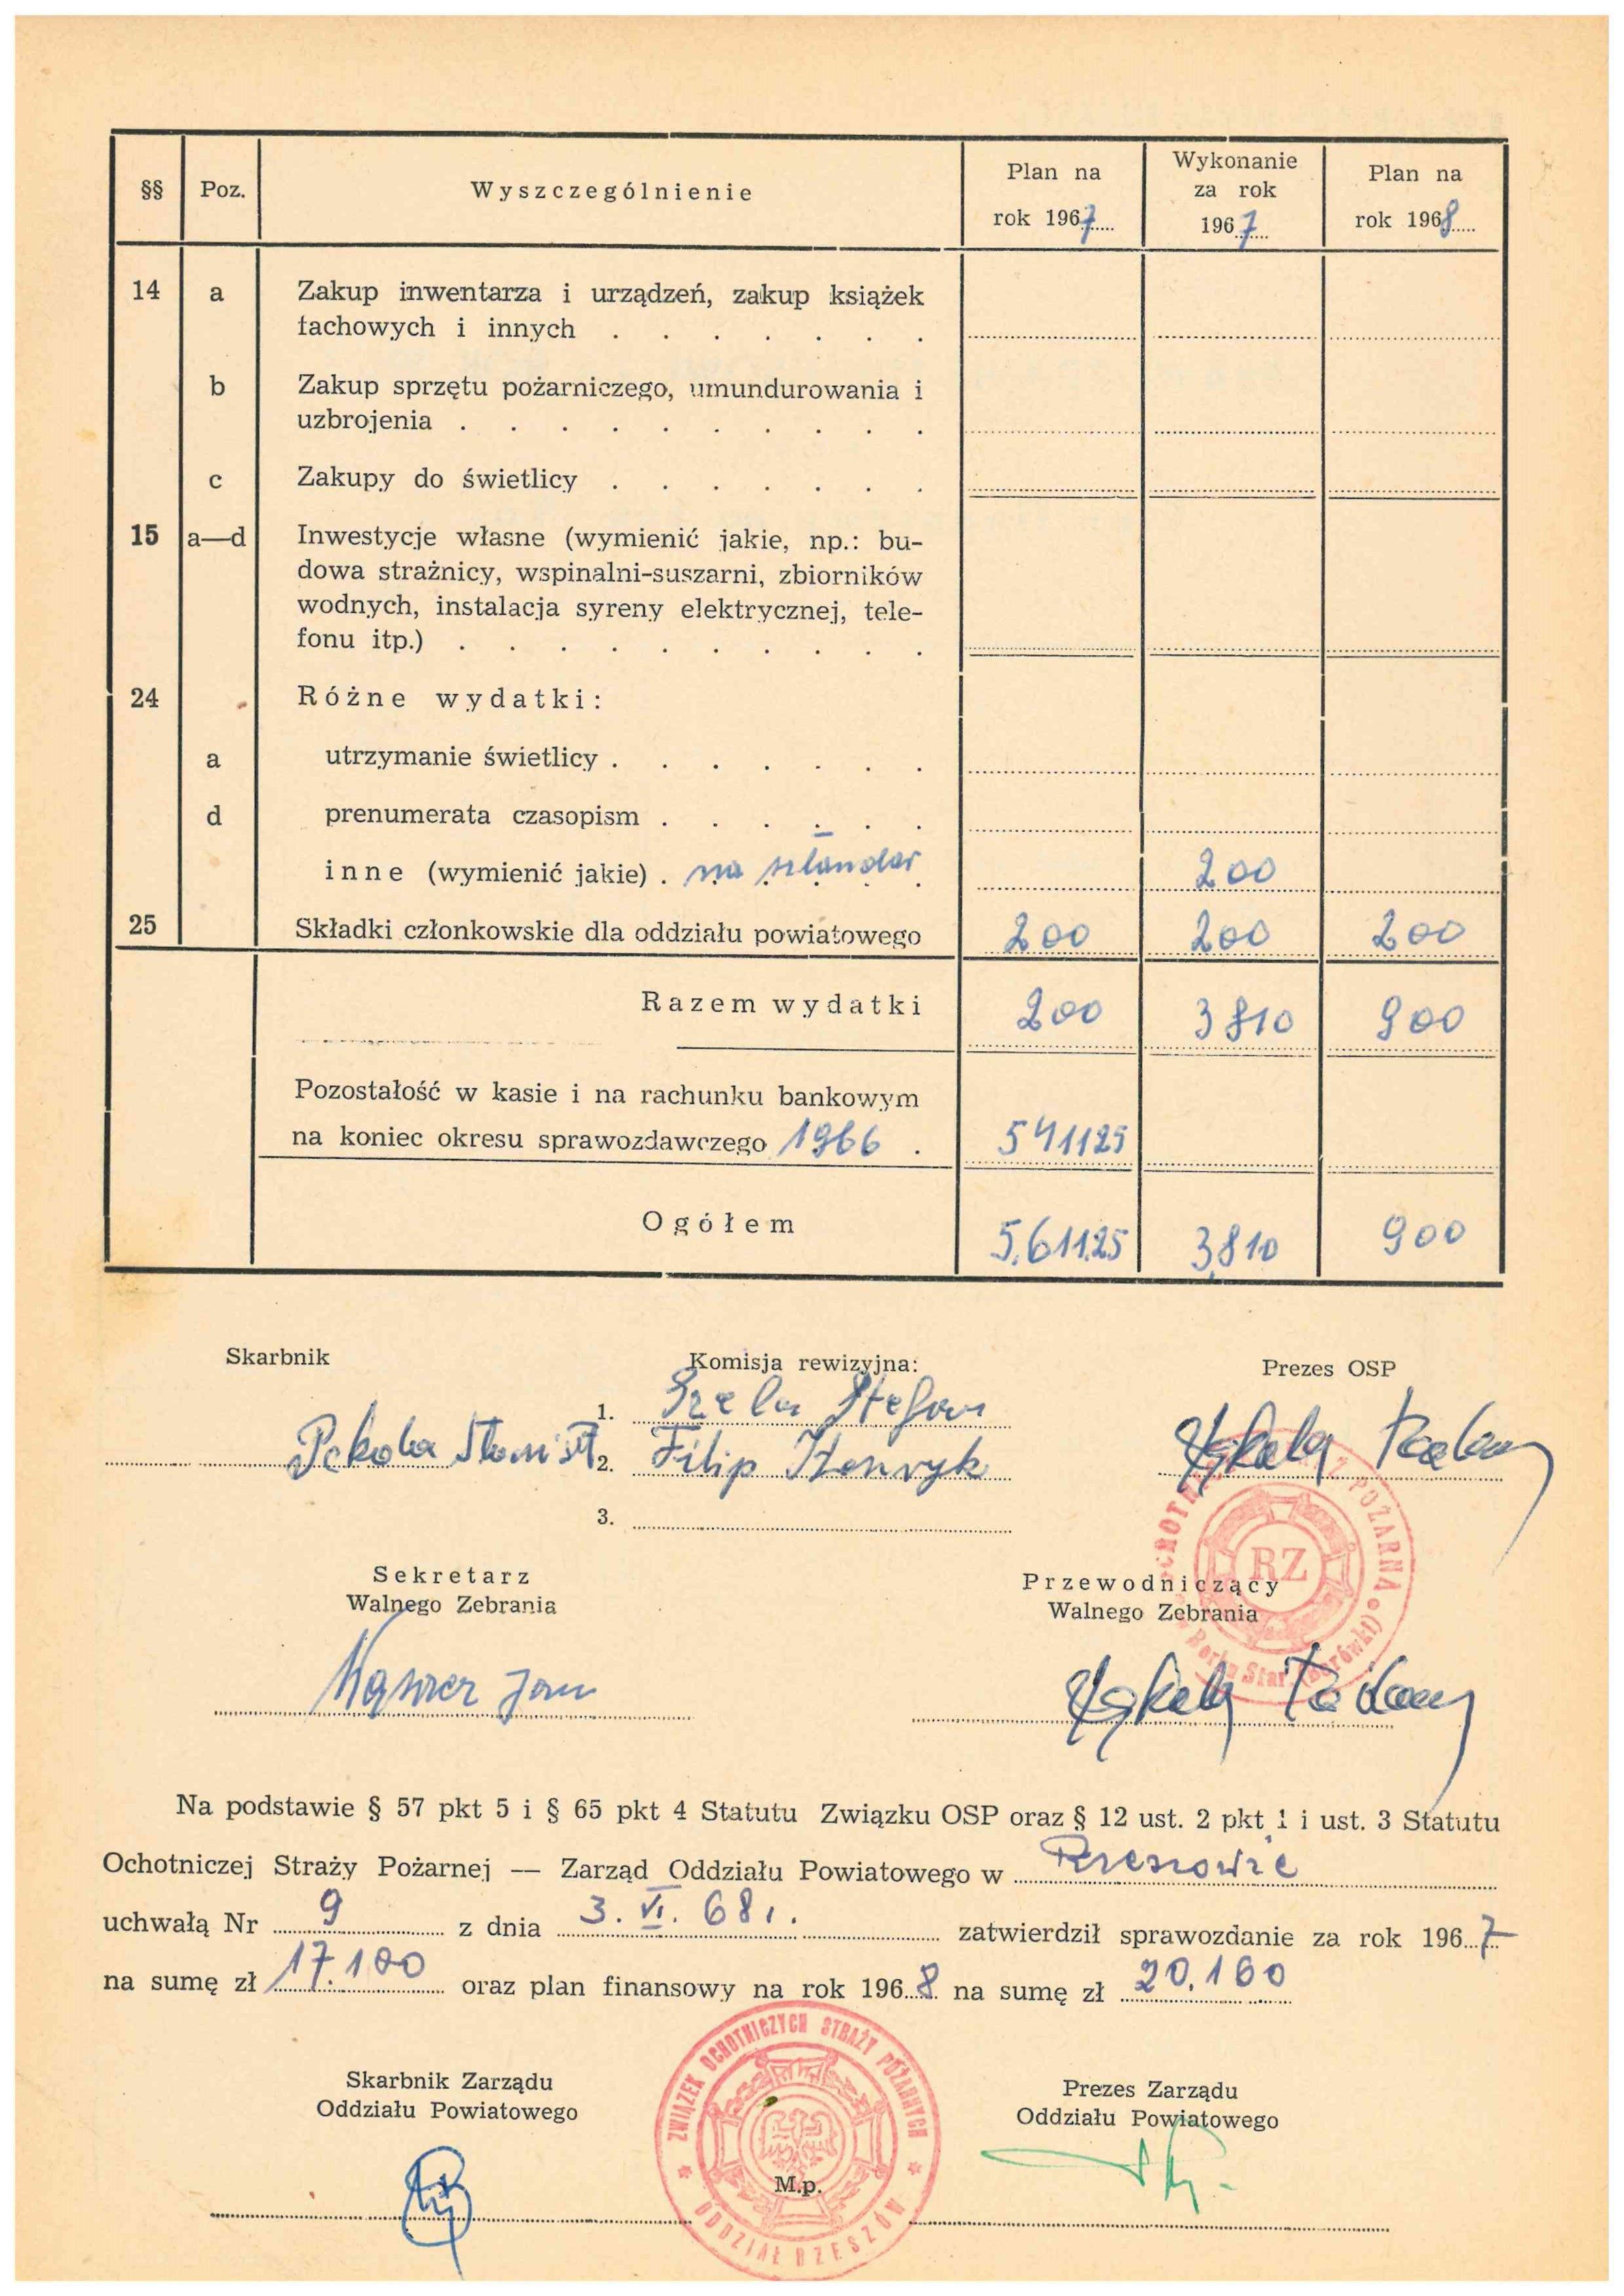 §§ Poz. Wyszczególnienie Plan na rok 1967 Wykonanie za rok 1967 Plan na rok 1968
14 a Zakup inwentarza i urządzeń, zakup książek
fachowych i innych . . . . . . .
b Zakup sprzętu pożarniczego, umundurowania i
uzbrojenia . . . . . . . . . .
c Zakupy do świetlicy . . . . . . .
15 a—d Inwestycje własne (wymienić jakie, np.: bu-
dowa strażnicy, wspinalni-suszarni, zbiorników
wodnych, instalacja syreny elektrycznej, tele-
fonu itp.) . . . . . . . . . .
24 Różne wydatki:
a utrzymanie świetlicy . . . . . . .
d prenumerata czasopism . . . . . .
inne (wymienić jakie) . na sztandar 200
25 Składki członkowskie dla oddziału powiatowego 200 200 200
Razem wydatki 200 3810 900
Pozostałość w kasie i na rachunku bankowym
na koniec okresu sprawozdawczego 1966 . 541125
Ogółem 5.611.25 3.810 900
Skarbnik Komisja rewizyjna: Prezes OSP
1. Szela Stefan
2. Filip Henryk
3.
RZ
Sekretarz
Walnego Zebrania
Przewodniczący
Walnego Zebrania
Jan
Na podstawie § 57 pkt 5 i § 65 pkt 4 Statutu Związku OSP oraz § 12 ust. 2 pkt 1 i ust. 3 Statutu
Ochotniczej Straży Pożarnej — Zarząd Oddziału Powiatowego w Rzeszowie
uchwałą Nr 9 z dnia 3. VI. 68 r. zatwierdził sprawozdanie za rok 1967
na sumę zł 17.100 oraz plan finansowy na rok 1968 na sumę zł 20.160
ZWIĄZEK OCHOTNICZYCH STRAŻY POŻARNYCH
Skarbnik Zarządu
Oddziału Powiatowego
Prezes Zarządu
Oddziału Powiatowego
M.p.
ODDZIAŁ RZESZÓW